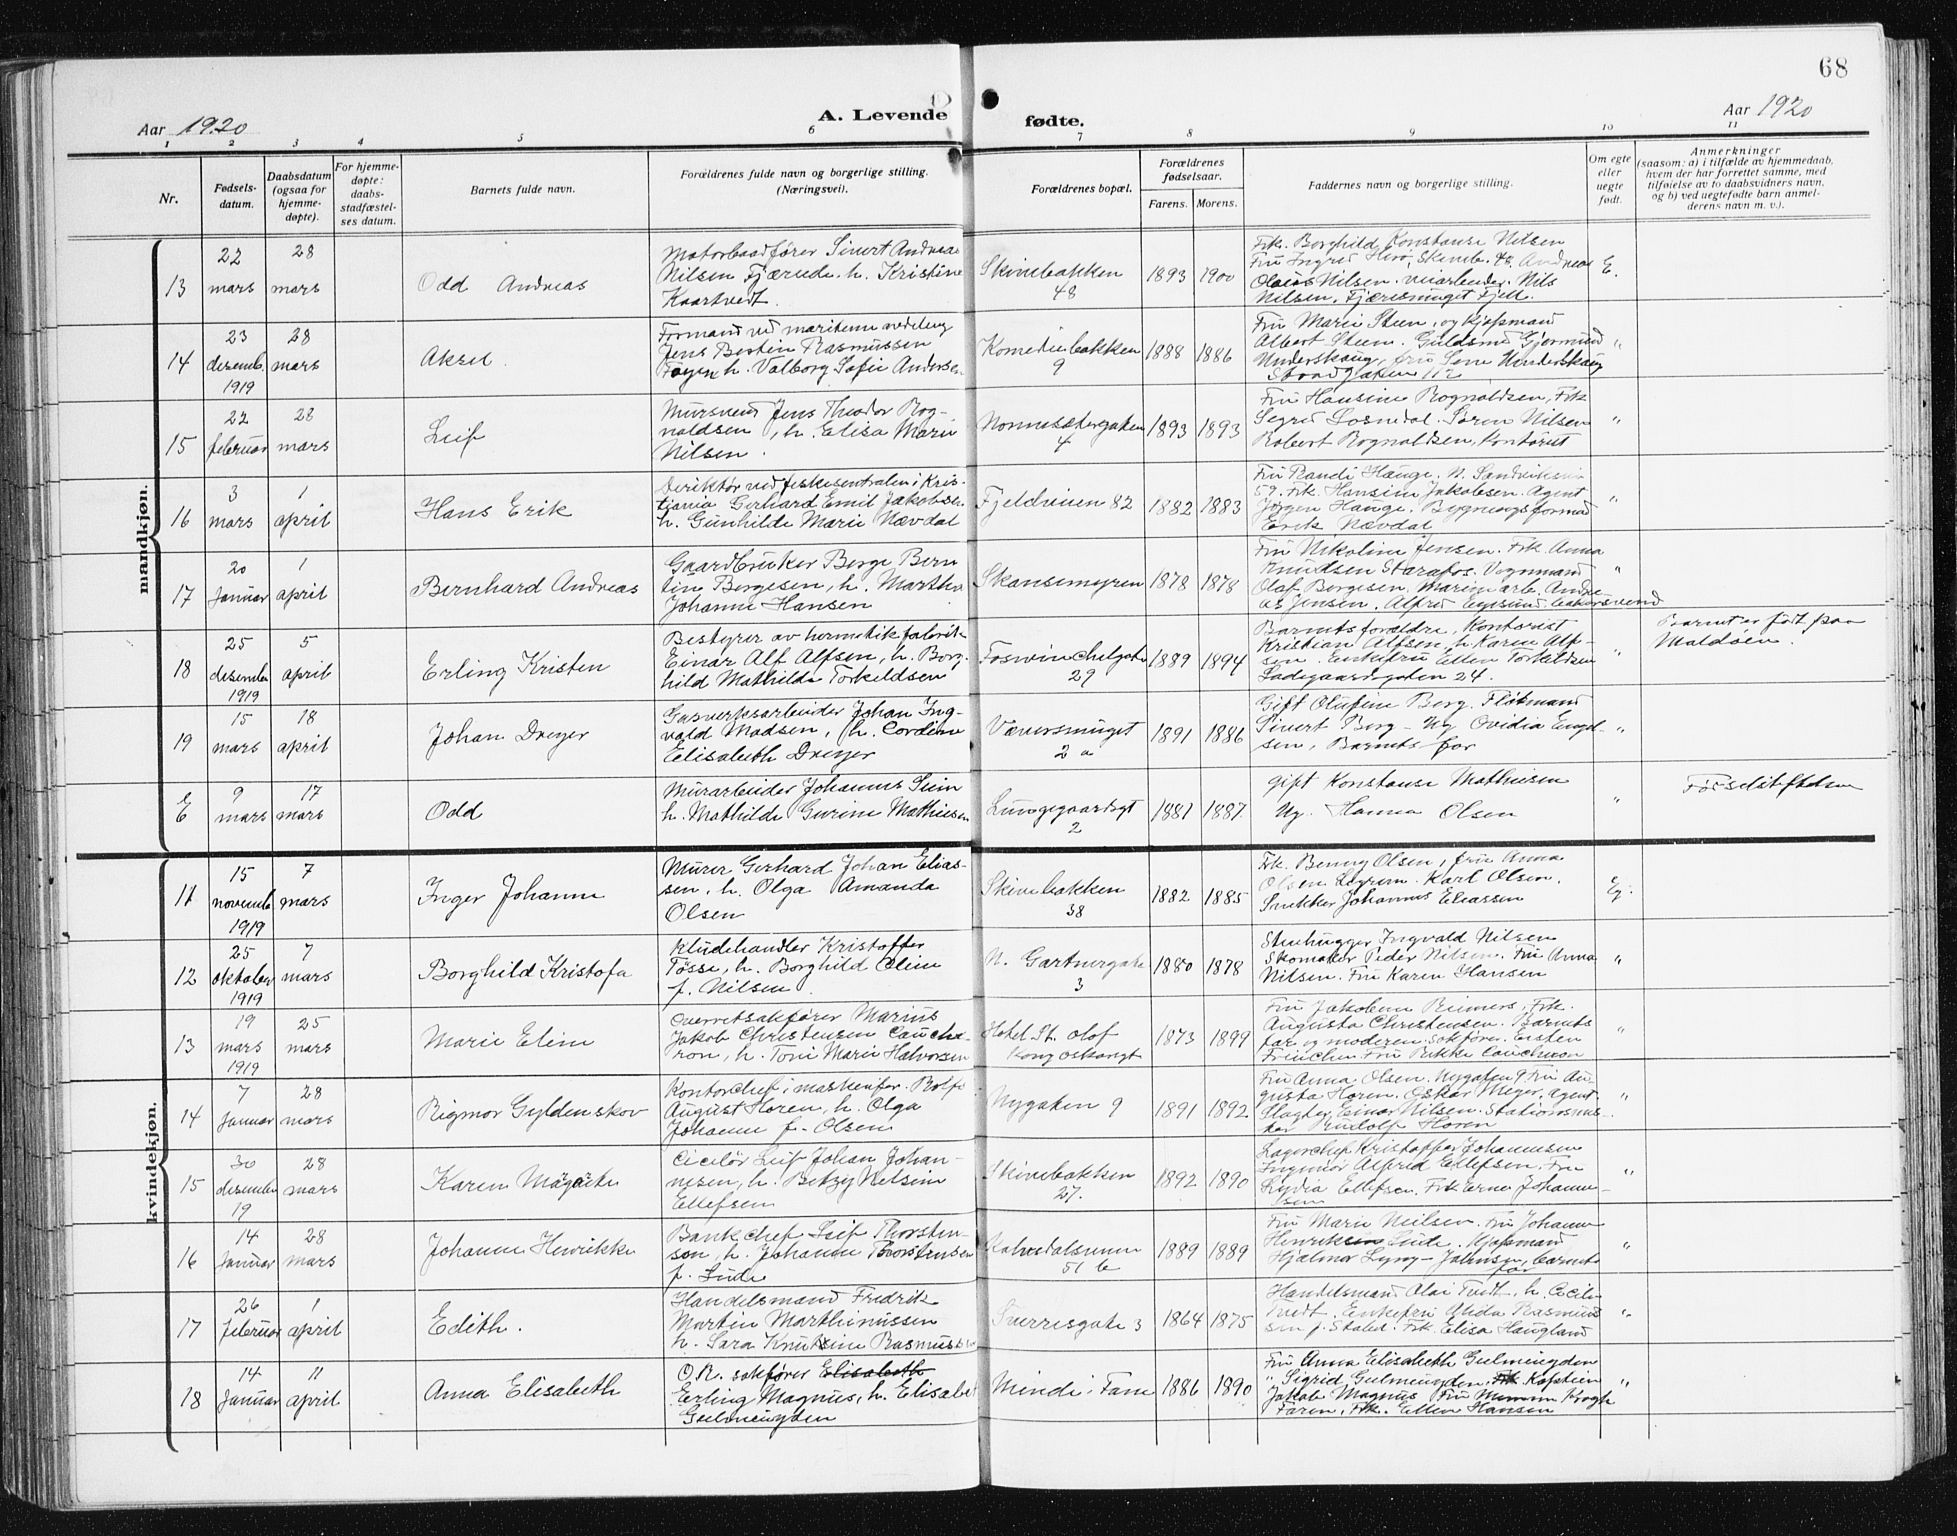 68
Aar 1920
A. Levende fødte.
Aar 1920
1 2 3 4 5 6 7 8 9 10 11
Nr.
Fødsels-
datum.
Daabsdatum
(ogsaa for
hjemme-
døpte).
For hjemme-
døpte:
daabs-
stadfæstel-
ses datum.
Barnets fulde navn.
Forældrenes fulde navn og borgerlige stilling.
(Næringsvei).
Forældrenes bopæl.
Forældrenes
fødselsaar.
Farens. Morens.
Faddernes navn og borgerlige stilling.
Om egte
eller
uegte
født.
Anmerkninger
(saasom: a) i tilfælde av hjemmedaab,
hvem der har forrettet samme, med
tilføielse av to daabsvidners navn,
og b) ved uegtefødte barn anmel-
derens navn m. v.).
mandkjøn.
13
22
mars
28
mars
Odd Andreas
Motorbaadfører Sivert Andreas
Nilsen Fjæreide. h. Kristine
Kaartvedt.
Skivebakken
48
1893 1900
Frk. Borghild Konstanse Nilsen
Fru Ingrid Skiveb. 48. Andreas
Olaus Nilsen. veiarbeider. Nils
Nilsen. Fjæresmuget Fjell.
E.
14
23
desemb.
1919
28
mars
Aksel
Formand ved maritime avdeling
Jens Bertin Rasmussen
h. Valborg Sofie Andersen
Komediebakken
9
1888 1886
Fru Marie Steen, og kjøpmand
Albert Steen. Guldsmd Gjermund
Underskaug, fru Sene Underskaug
Strandgaten 112
"
15
22
februar
28
mars
Leif
Mursvend Jens Theodor Rog-
naldsen, h. Elisa Marie
Nilsen.
Nonnesætergaten
4
1893 1893
Fru Hansine Rognaldsen, Frk
Segred Losnedal. Søren Nilsen
Robert Rognaldsen, Kontorist
"
16
3
mars
1
april
Hans Erik
Direktør ved fiskesentralen i Kris-
tiania Gerhard Emil Jakobsen
h. Gunhilde Marie Nævdal
Fjeldveien 82
1882 1883
Fru Randi Hauge. N. Sandviksvei
59. Frk. Hansine Jakobsen. Agent
Jørgen Hauge. Bygningsformand
Erik Nævdal
"
17
20
Januar
1
april
Bernhard Andreas
Gaardbruker Berge Bern
tin Bergesen, h. Martha
Johanne Hansen
Skansemyren
1878 1878
Fru Nikoline Jensen. Frk. Anna
Knudsen Starefos. Vognmand
Olaf Bergesen. Marinearb. Andre
as Jensen. Alfred Egesund bakersvend
"
18
25
desember
1919
5
april
Erling Kristen
Bestyrer av hermetikfabrik
Einar Alf Alfsen, h. Borg
hild Mathilde Torkildsen
Foswinckelgate
29
1889 1894
Barnets forældre, Kontorist
Kristian Alfsen, h. Karen Alf-
sen. Enkefru Ellen Torkildsen
Ladegaardsgaten 24.
"
Barnet er født paa
Maldøen.
19
15
mars
18
april
Johan Dreyer
Gasverksarbeider Johan Ing-
vald Madsen, h. Cordine
Elisabeth Dreyer
Væversmuget
2 a
1891 1886
Gift Olufine Berg. Fløtmand
Sivert Berg - Ug Ovidia Engel-
sen, Barnets far
"
E
9
mars
17
mars
Odd
Murarbeider Johannes Seim
h. Mathilde Gurine Mathiesen
Lungegaardsgt
2
1881 1887
gift Konstanse Mathiesen
Ug. Hanna Olsen
"
Fødselsstiftelsen
kvindekjøn.
11
15
novemb.
1919
7
mars
Inger Johanne
Murer Gerhard Johan Elias-
sen, h. Olga Amanda
Olsen
Skivebakken
38
1882 1885
Frk. Benny Olsen, fru Anna
Olsen Karl Olsen.
Snekker Johannes Eliassen
Eg.
12
25
oktober
1919
7
mars
Borghild Kristofa
Kludehandler Kristoffer
Tøsse, h. Borghild Eline
f. Nilsen.
N. Gartnergate
3
1880 1878
Stenhugger Ingvald Nilsen
Skomaker Peder Nilsen. Fru Anna
Nilsen. Fru Karen Hansen
"
13
19
mars
1919
25
mars
Marie Eline
Overretsakfører Marius
Jakob Christensen Cauche
ron, h. Toni Marie Halvorsen
Hotel St. Olaf
Kong oskarsgt
1873 1899
Fru Jakobine Reimers. Frk.
Augusta Christensen. Barnets
far og moderen. sakfører. Eisten
Friechen. Fru Rikke Caucheron
"
14
7
Januar
28
mars
Rigmor Gyldenskov
Kontorchef i maskinfor. Rolf
August Horen, h. Olga
Johanne f. Olsen
Nygaten 9
1891 1892
Fru Anna Olsen. Nygaten 9. Fru Au-
gusta Horen. Oskar Meyer, agent
Slagter Einar Nilsen. Stationsmes-
ter Rudolf Horen
"
15
30
desember
19
28
mars
Karen Margrethe
Ciselør Leif Johan Johan-
nesen, h. Betzy Nelsine
Ellefsen
Skivebakken
27.
1892 1890
Lagerchef Kristoffer Johannesen
Ingeniør Alfred Ellefsen. Fru
Lydia Ellefsen. Frk Erna Johanne-
sen
"
16
14
Januar
28
mars
Johanne Henrikke
Bankchef Leif Thorsten-
son, h. Johanne Thorstensen
f. Lude
Kalvedalsveien
51 b
1889 1889
Fru Marie Neilsen. Fru Johanne
Henriksen Lude. Kjøpmand
Hjalmar Lyng-Johnsen, barnets
far
"
17
26
februar
1
april
Edith.
Handelsmand Fredrik
Morten Marthinussen
h. Sara Knutsine Rasmussen
Sverresgate 3
1864 1875
Handelsmand Olai Tvedt, h. Cecilie
Tvedt. Enkefru Alida Rasmus
sen f. Stabel. Frk. Elisa Haugland
"
18
14
Januar
11
april
Anna Elisabeth
O.R. sakfører Elisabeth
Erling Magnus, h. Elisabet
Geelmuyden
Minde i Fane
1886 1890
Fru Anna Elisabeth Geelmuyden
" Sigrid Geelmuyden, Frk Kaptein
Jakob Magnus Fru Mimmi Krogh
Faren. Frk. Ellen Hansen
"